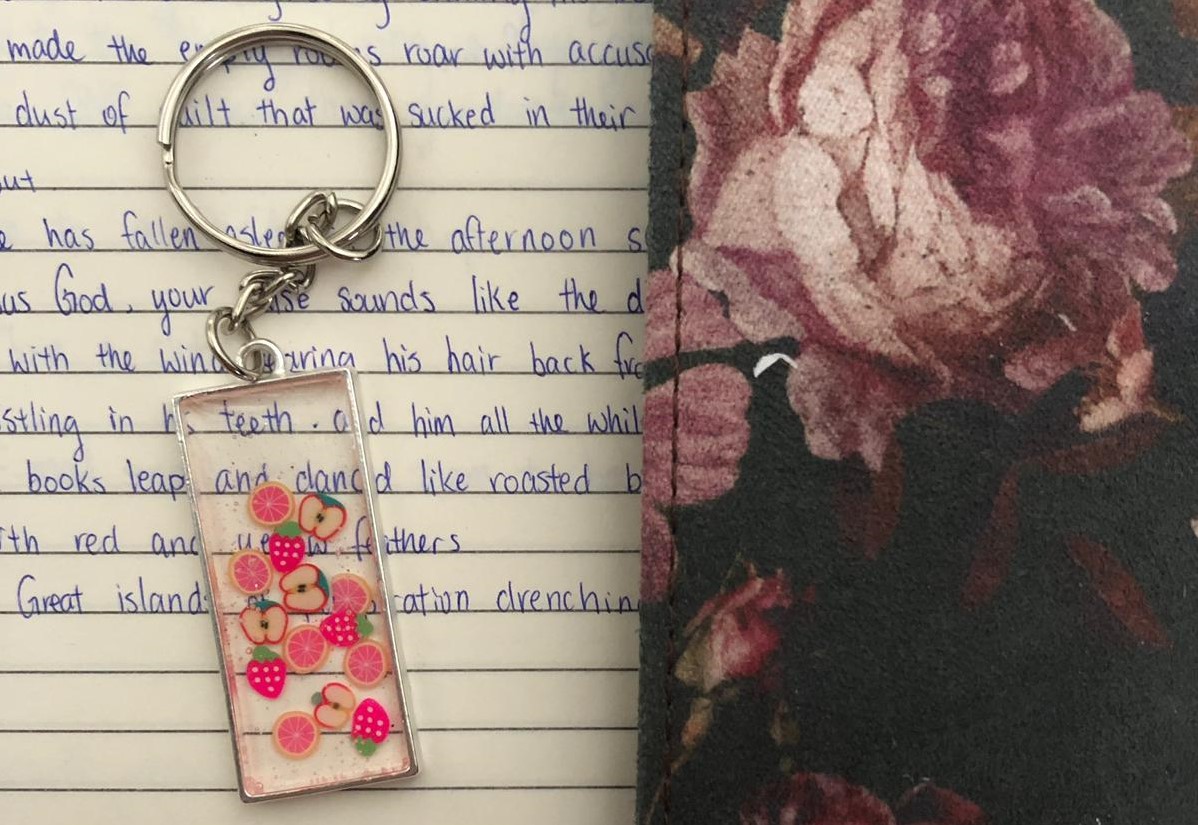 made the empty rooms roar with accus
dust of guilt that was sucked in their
ut
has fallen aslee the afternoon s
as God, your sounds like the d
with the wind his hair back fr
stling in his teeth. and him all the whil
books leap and danced like roasted b
ith red and yellow feathers
Great island ration drenchin